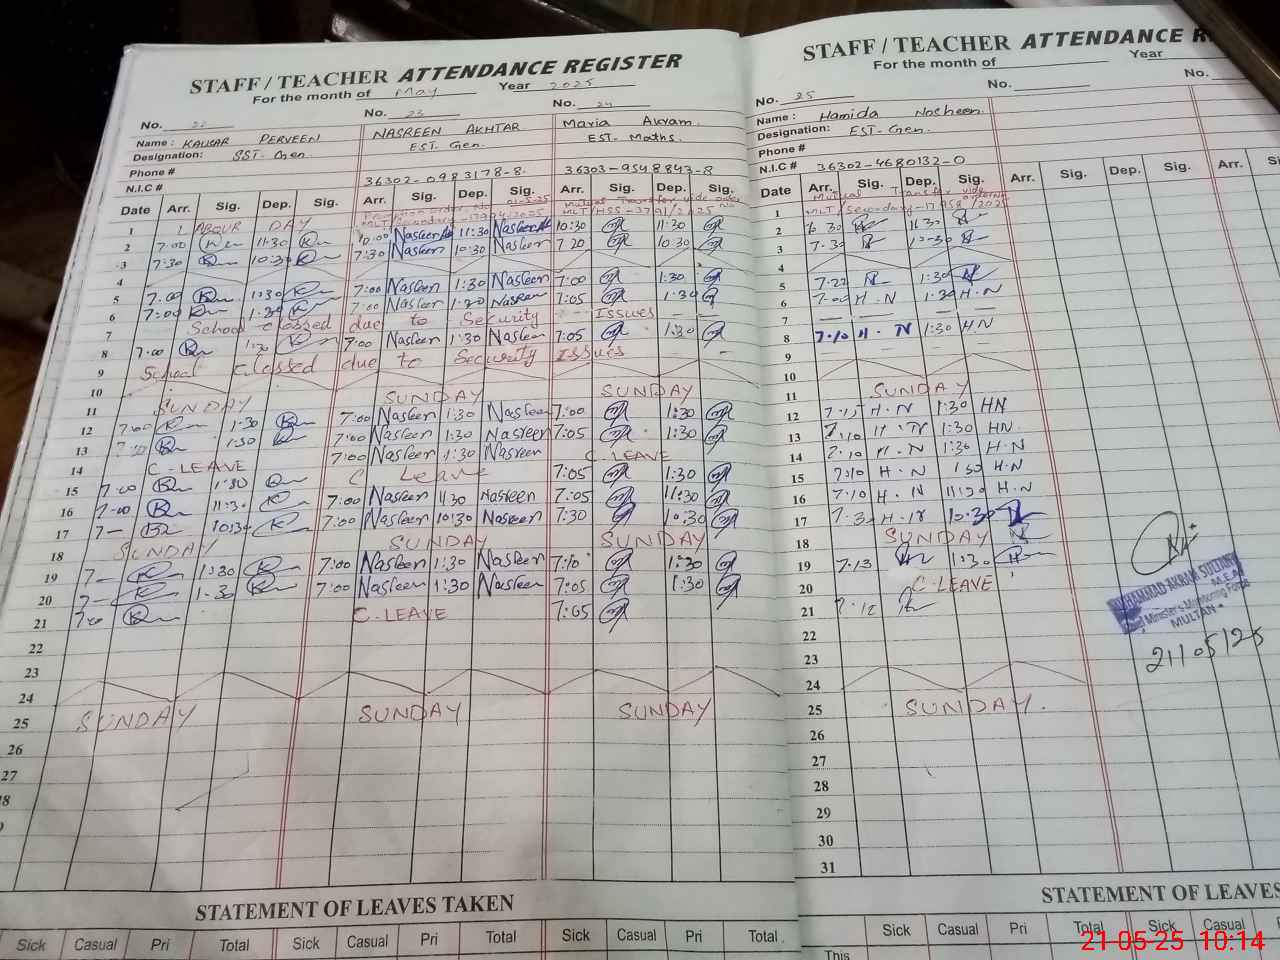 STAFF / TEACHER ATTENDANCE REGISTER
For the month of May Year 2025
No. 22 No. 23 No. 24
Name : KAUSAR PERVEEN NASREEN AKHTAR Maria Akram.
Designation: SST- Gen. EST. Gen. EST- Maths.
Phone #
N.I.C # 36302-0983178-8. 36303-9548843-8
Date Arr. Sig. Dep. Sig. Arr. Sig. Dep. Sig. Arr. Sig. Dep. Sig.
1 LABOUR DAY
2 7:00 11:30 10:00 Nasreen 11:30 Nasreen 10:30 11:30
3 7:30 10:30 7:30 Nasreen 10:30 Nasreen 7 20 10:30
4
5 7:00 1:30 7:00 Nasreen 1:30 Nasreen 7:00 1:30
6 7:00 1:30 7:00 Nasreen 1:30 Nasreen 7:05 1:30
7 School closed due to Security Issues
8 7:00 1:30 7:00 Nasreen 1:30 Nasreen 7:05 1:30
9 School closed due to Security Issues
10
11 SUNDAY SUNDAY SUNDAY
12 7:00 1:30 7:00 Nasreen 1:30 Nasreen 7:00 1:30
13 1:30 7:00 Nasreen 1:30 Nasreen 7:05 1:30
14 C-LEAVE 7:00 Nasreen 1:30 Nasreen C.LEAVE
15 7:00 1:30 C Leave 7:05 1:30
16 7:00 11:30 7:00 Nasreen 11:30 Nasreen 7:05 11:30
17 7- 10:30 7:00 Nasreen 10:30 Nasreen 7:30 10:30
18 SUNDAY SUNDAY SUNDAY
19 7- 1:30 7:00 Nasreen 1:30 Nasreen 7:10 1:30
20 7- 1:30 7:00 Nasreen 1:30 Nasreen 7:05 1:30
21 7:00 C.LEAVE 7:05
22
23
24
25 SUNDAY SUNDAY SUNDAY
26
27
STATEMENT OF LEAVES TAKEN
Sick Casual Pri Total Sick Casual Pri Total Sick Casual Pri Total
STAFF / TEACHER ATTENDANCE
For the month of Year
No. 25 No. No.
Name : Hamida Nosheen.
Designation: EST-Gen.
Phone #
N.I.C # 36302-4680132-0
Date Arr. Sig. Dep. Sig. Arr. Sig. Dep. Sig. Arr.
1 Mutual Transfer vide
2 11:30
3 7:30 10:30
4
5 7:22 1:30
6 7:00 H.N 1:30 H.N
7
8 7:10 H.N 1:30 HN
9
10
11 SUNDAY
12 H.N 1:30 HN
13 7:10 1:30 HN
14 7:10 H.N 1:30 H.N
15 7:10 H.N 1:30 H.N
16 7:10 H.N 11:30 H.N
17 7:30 10:30
18 SUNDAY
19 7:13 1:30
20 C-LEAVE
21 7:12
22
23
24
25 SUNDAY.
26
27
28
29
30
31
MUHAMMAD AKRAM SULTAN
M.E.A
Chief Minister's Monitoring Force
MULTAN
21/05/25
STATEMENT OF LEAVES
Sick Casual Pri Total Sick Casual
This
21-05-25 10:14